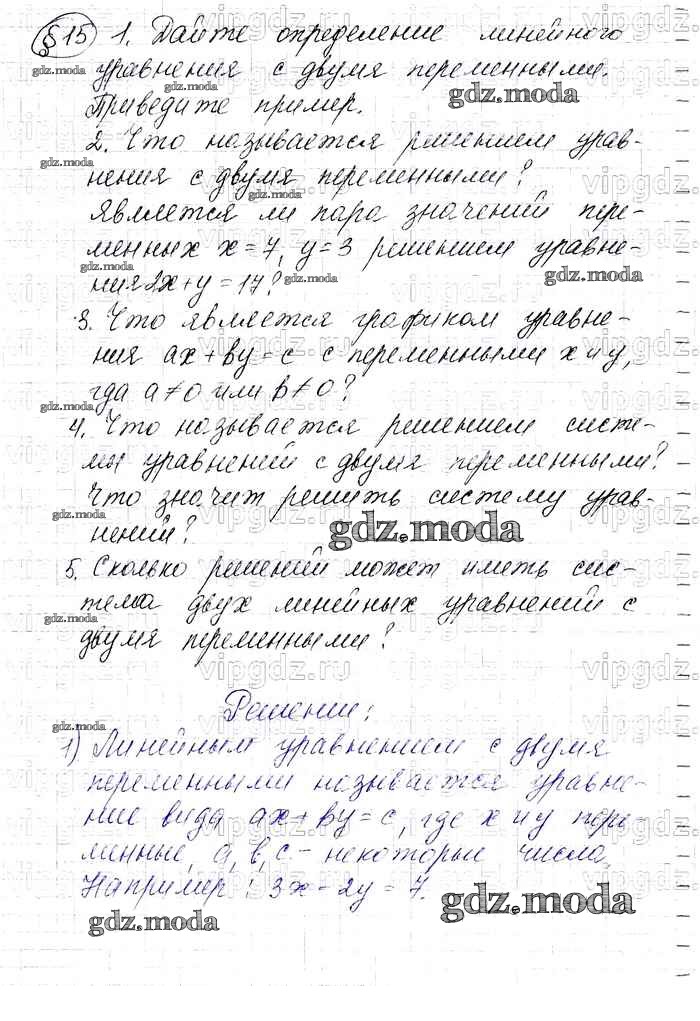 §15 1. Дайте определение линейного
уравнения с двумя переменными.
gdz.moda
gdz.moda
Приведите пример.
2. Что называется решением урав-
gdz.moda
нения с двумя переменными?
gdz.moda
Является ли пара значений пере-
менных x=7, y=3 решением уравне-
gdz.moda
gdz.moda
ния 2x+y=17?
3. Что является графиком уравне-
ния ax+by=c с переменными x и y,
где a≠0 или b≠0?
gdz.moda
4. Что называется решением систе-
мы уравнений с двумя переменными?
Что значит решить систему урав-
gdz.moda
нений?
gdz.moda
5. Сколько решений может иметь сис-
тема двух линейных уравнений с
gdz.moda
двумя переменными?
vipgdz.ru
Решении:
gdz.moda
1) Линейным уравнением с двумя
переменными называется уравне-
ние вида ax+by=c, где x и y пере-
менные, a, b, c - некоторые числа,
Например: 3x-2y=7.
gdz.moda
gdz.moda